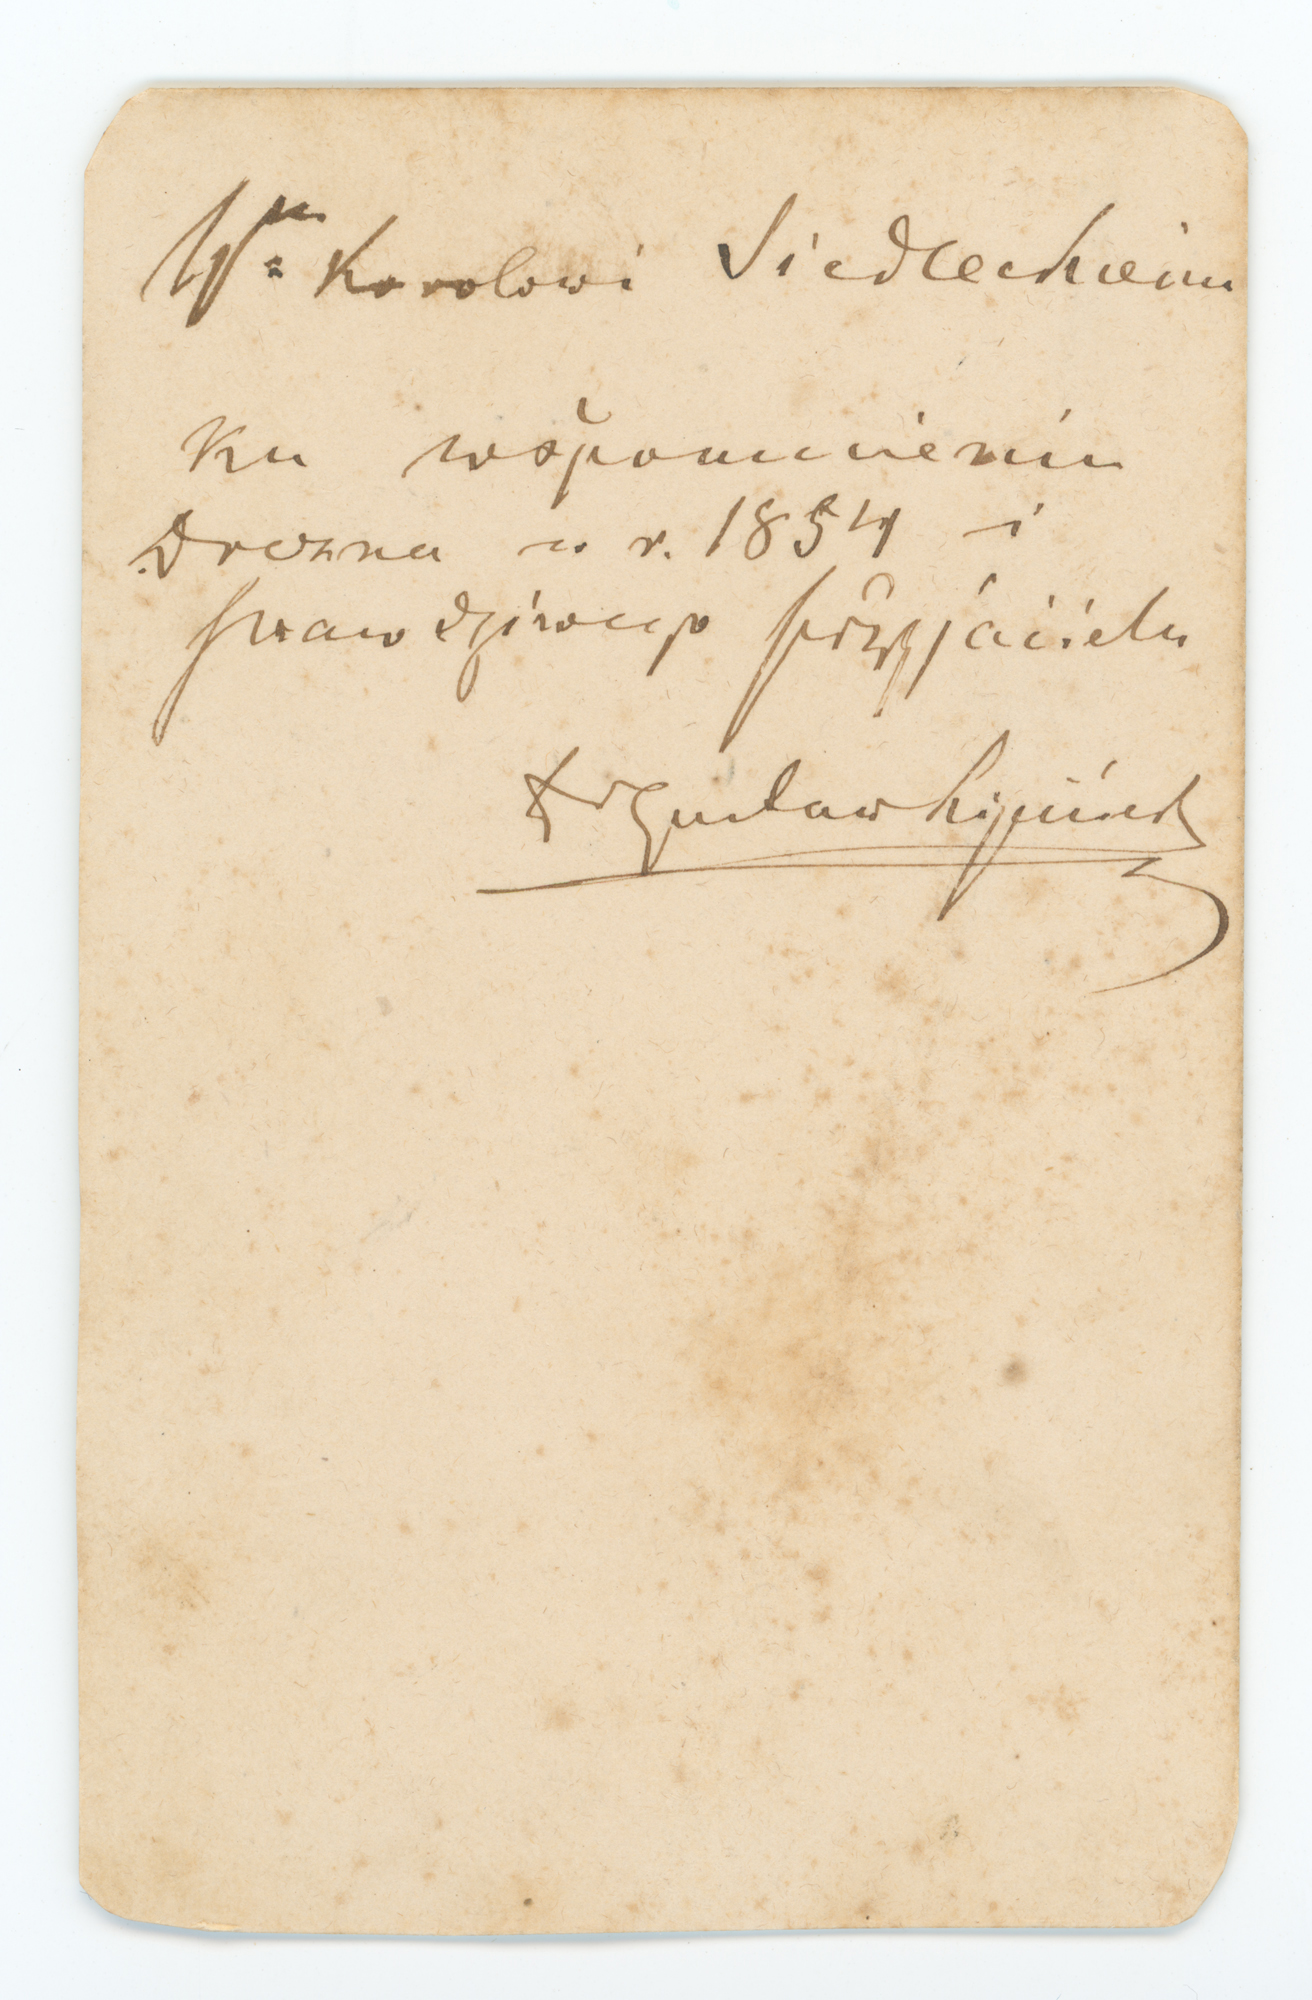 Wmu Karolowi Siedleckiemu
Ku wspomnieniu
Drezna w r. 1854 i
prawdziwego przyjaciela
Gustaw Lipiński